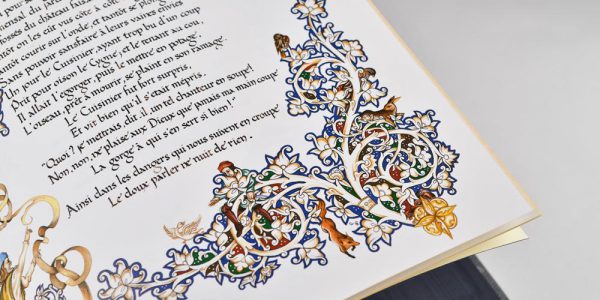 mensal du jardin
fossés du château faisant
tôt on les eût vus côte à côte nager,
Tantôt courir sur l'onde, et tantôt se plonger,
Sans pouvoir satisfaire à leurs vaines envies
Un jour le Cuisinier, ayant trop bu d'un coup
Prit pour oison le Cygne; et le tenant au cou,
Il allait l'égorger, puis le mettre en potage.
L'oiseau, prêt à mourir, se plaint en son ramage.
Le Cuisinier fut fort surpris,
Et vit bien qu'il s'était mépris.
"Quoi? je mettrais, dit-il, un tel chanteur en soupe!
Non, non, ne plaise aux Dieux que jamais ma main coupe
La gorge à qui s'en sert si bien!"
Ainsi dans les dangers qui nous suivent en croupe
Le doux parler ne nuit de rien.